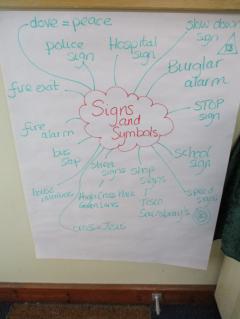 dove = peace
police
sign
Hospital
sign
slow down
sign
Burglar
alarm
fire exit
Signs
and
Symbols
STOP
sign
fire
alarm
bus
stop
street
signs
shop
signs
school
sign
house
numbers
High Cross Park
Green Lanes
Tesco
Sainsbury's
speed
signs
cross = Jesus